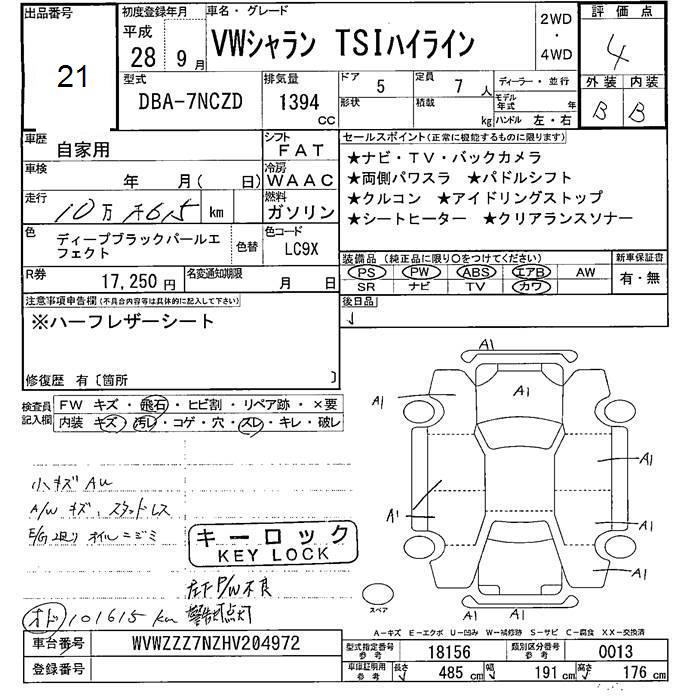 出品番号
21
初度登録年月
平成
28 9月
車名・グレード
VWシャラン TSIハイライン
2WD
・
4WD
評価点
4
外装 内装
B B
型式
DBA-7NCZD
排気量
1394
CC
ドア 5
形状
定員 7人
積載 kg
ディーラー・並行
モデル年式 年
ハンドル 左・右
車歴
自家用
シフト
FAT
車検
年 月( 日)
冷房
WAAC
走行
10万 千615 km
燃料
ガソリン
色
ディープブラックパールエフェクト
色替
色コード
LC9X
R券
17,250円
名変通知期限
月 日
セールスポイント(正常に機能するものに限ります)
★ナビ・TV・バックカメラ
★両側パワスラ ★パドルシフト
★クルコン ★アイドリングストップ
★シートヒーター ★クリアランスソナー
装備品(純正品に限り○をつけてください)
PS PW ABS エアB AW
SR ナビ TV カワ
新車保証書
有・無
後日品
注意事項申告欄(不具合内容等は具体的に記入して下さい)
※ハーフレザーシート
修復歴 有〔箇所 〕
検査員記入欄
FW キズ・飛石・ヒビ割・リペア跡・×要
内装 キズ・汚レ・コゲ・穴・スレ・キレ・破レ
小キズ AU
A/W キズ、スタッドレス
E/G廻り オイルニジミ
キーロック
KEY LOCK
左下P/W不良
オド 101615km 警告灯点灯
A1
A1
A1
A1
A1
A1
A1
A1
スペア
A-キズ E-エクボ U-凹み W-補修跡 S-サビ C-腐食 XX-交換済
車台番号
WVWZZZ7NZHV204972
登録番号
型式指定番号参考 18156
類別区分番号参考 0013
車庫証明用参考
長さ 485 cm
幅 191 cm
高さ 176 cm